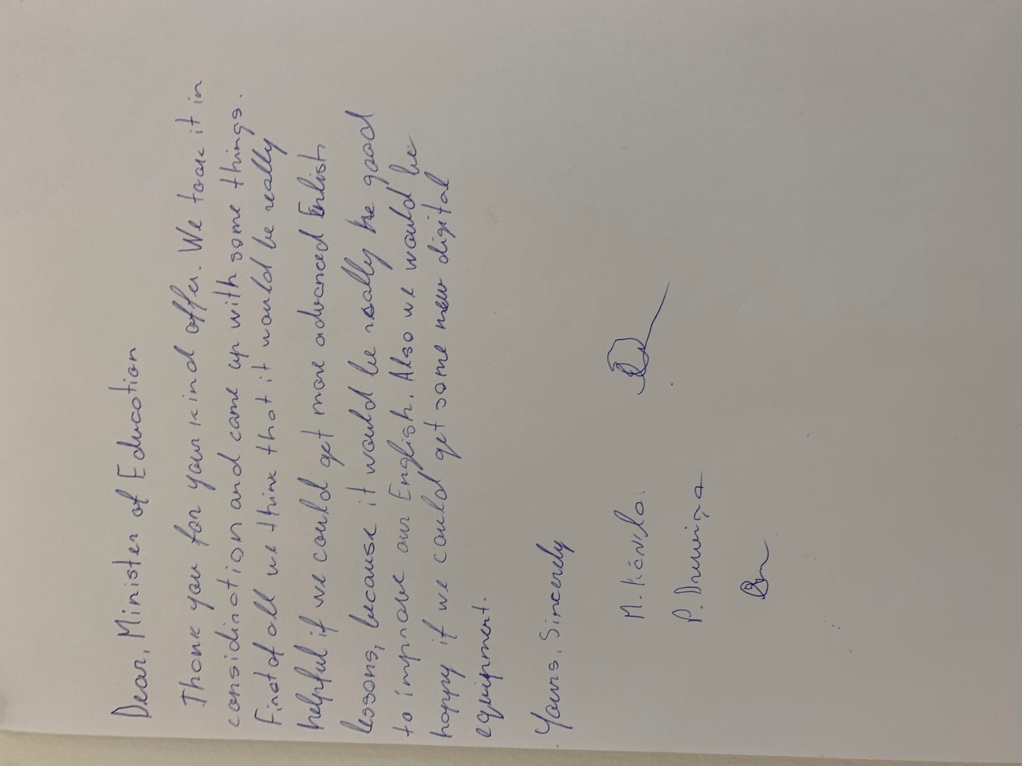 Dear, Minister of Education
Thank you for your kind offer. We took it in
considination and came up with some things.
First of all we think that it would be really
helpful if we could get more advanced Enlish
lessons, because it would be really be good
to improve our English. Also we would be
happy if we could get some new digital
equipment.
Yours, Sincerely
M.
P.